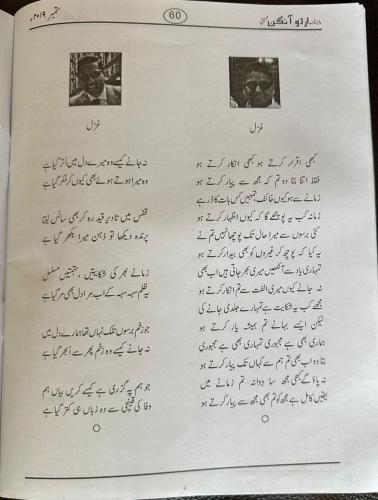 ماہنامہ اردو آنگن ممبئی
60
ستمبر ۲۰۱۹ء
غزل
کبھی اقرار کرتے ہو کبھی انکار کرتے ہو
فقط اتنا بتا دو تم کہ مجھ سے پیار کرتے ہو
زمانے سے ہو کیوں خائف تمہیں کس بات کا ڈر ہے
زمانہ کب یہ پوچھے گا کہ کیوں اظہار کرتے ہو
کئی برسوں سے میرا حال تک پوچھا نہیں تم نے
یہ کیا کہ پوچھ کر غیروں کو بھی بیدار کرتے ہو
تمہاری یاد سے آنکھیں میری بھر جاتی ہیں اب بھی
نہ جانے کیوں میری الفت سے تم انکار کرتے ہو
مجھے کب یہ شکایت ہے تمہارے جلدی جانے کی
لیکن ایسے بہانے تم ہمیشہ یار کرتے ہو
ہماری بھی ہے مجبوری تمہاری بھی ہے مجبوری
بتا دو اب بھی تم ہم سے کہاں تک پیار کرتے ہو
نہ پاؤ گے کبھی مجھ سا دوانہ تم زمانے میں
یقیں کامل ہے مجھ کو تم بھی مجھ سے پیار کرتے ہو
غزل
نہ جانے کیسے وہ میرے دل میں اُتر گیا ہے
وہ میرا ہوتے ہوئے بھی کیوں کر مُکر گیا ہے
قفس میں تا دیر قید رہ کر بھی سانس لیتا
پرندہ دیکھا تو ذہن میرا بکھر گیا ہے
زمانے بھر کی شکایتیں، تہمتیں مسلسل
یہ ظلم سہہ سہہ کے اب مرا دل بھی مر گیا ہے
جو زخم برسوں تلک نہاں تھا ہمارے دل میں
نہ جانے کیسے وہ زخم پھر سے اُبھر گیا ہے
جو ہم پہ گزری ہے کیسے کریں بیاں ہم
وفا کی قینچی سے وہ زباں ہی کتر گیا ہے